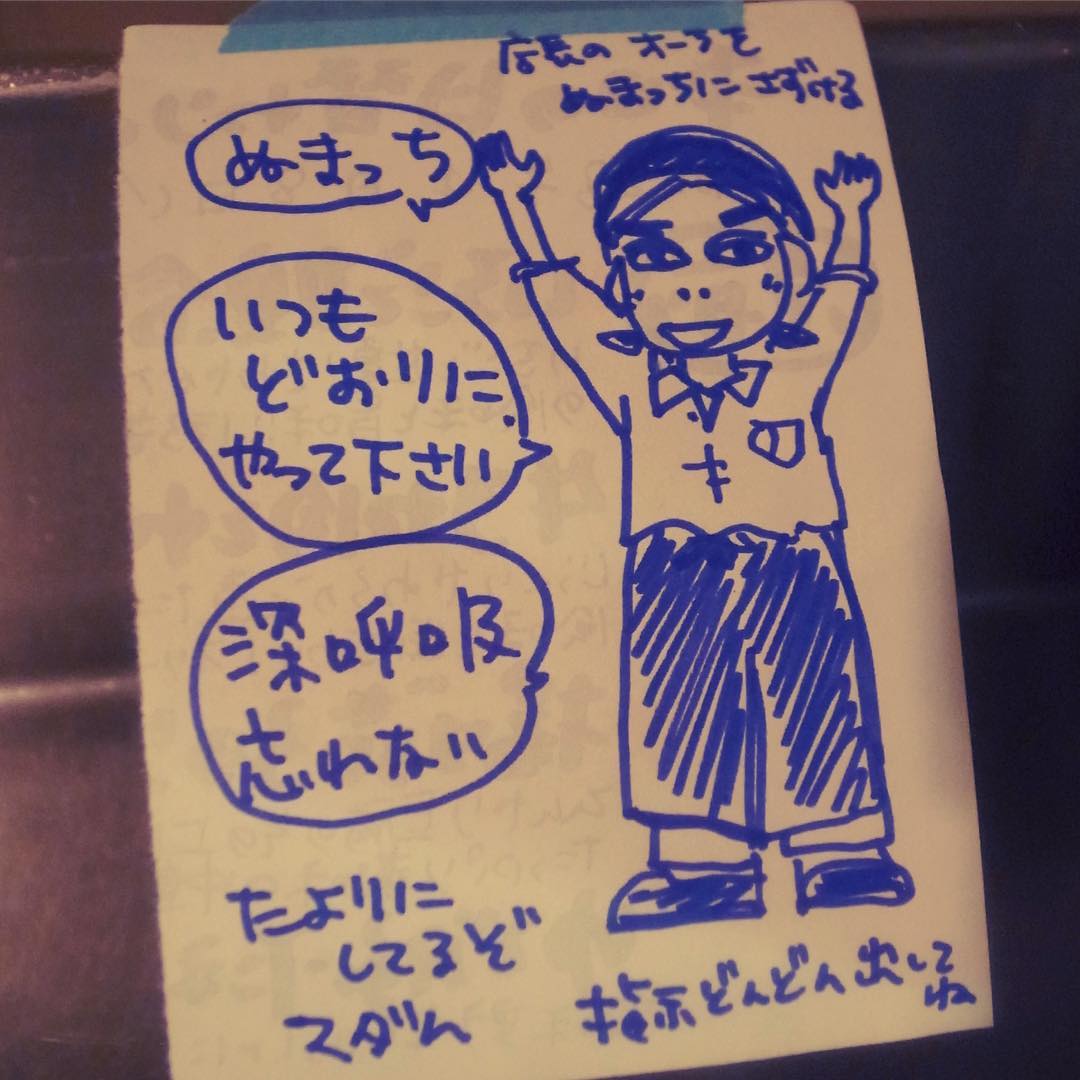 店長の オーラを
ぬまっちに さずける
ぬまっち
いつも
どおりに、
やって下さい
深呼吸
忘れない
たよりに
してるぞ
スダん
指示どんどん出して
ね